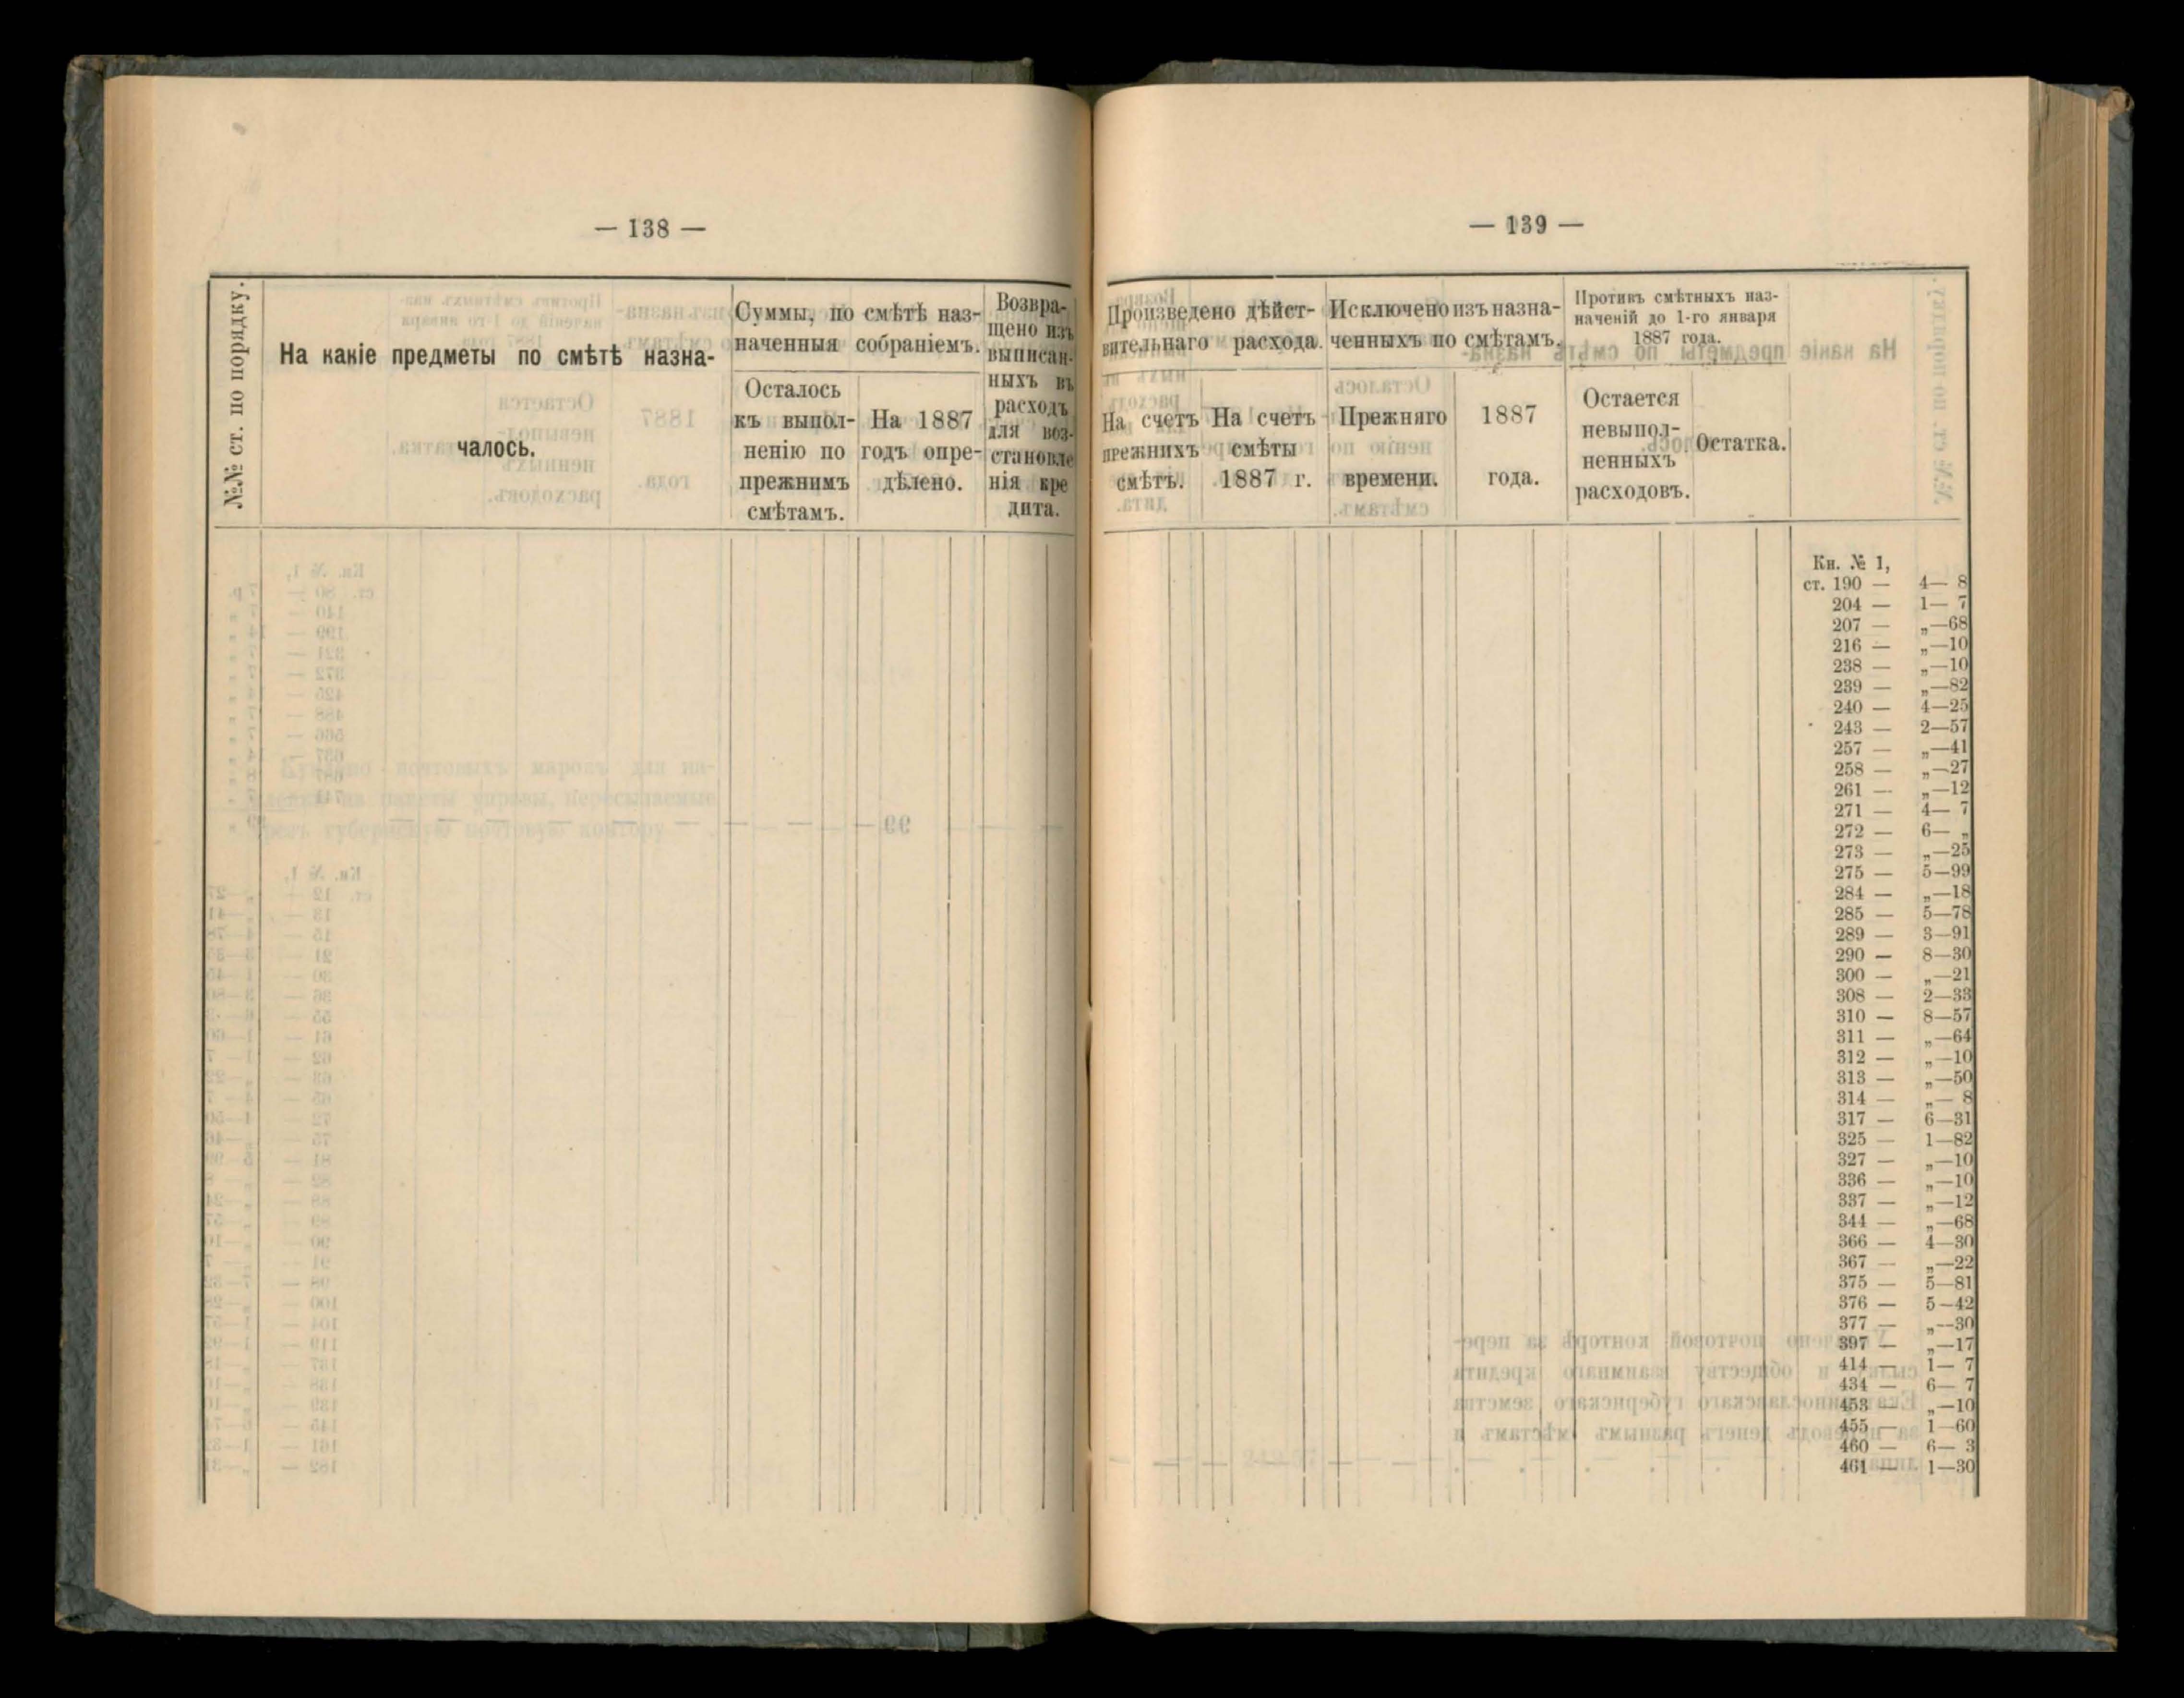 — 138 —
№№ ст. по порядку.
На какіе предметы по смѣтѣ назна-
чалось.
Суммы, по смѣтѣ наз-
наченныя собраніемъ.
Осталось
къ выпол-
ненію по
прежнимъ
смѣтамъ.
На 1887
годъ опре-
дѣлено.
Возвра-
щено изъ
выписан-
ныхъ въ
расходъ
для воз-
становле
нія кре
дита.
— 139 —
Произведено дѣйст-
вительнаго расхода.
На счетъ
прежнихъ
смѣтъ.
На счетъ
смѣты
1887 г.
Исключено изъ назна-
ченныхъ по смѣтамъ.
Прежняго
времени.
1887
года.
Противъ смѣтныхъ наз-
наченій до 1-го января
1887 года.
Остается
невыпол-
ненныхъ
расходовъ.
Остатка.
Кн. № 1,
ст. 190 — 4— 8
204 — 1— 7
207 — „—68
216 — „—10
238 — „—10
239 — „—82
240 — 4—25
243 — 2—57
257 — „—41
258 — „—27
261 — „—12
271 — 4— 7
272 — 6— „
273 — „—25
275 — 5—99
284 — „—18
285 — 5—78
289 — 3—91
290 — 8—30
300 — „—21
308 — 2—33
310 — 8—57
311 — „—64
312 — „—10
313 — „—50
314 — „— 8
317 — 6—31
325 — 1—82
327 — „—10
336 — „—10
337 — „—12
344 — „—68
366 — 4—30
367 — „—22
375 — 5—81
376 — 5—42
377 — „—30
397 — „—17
414 — 1— 7
434 — 6— 7
453 — „—10
455 — 1—60
460 — 6— 3
461 — 1—30